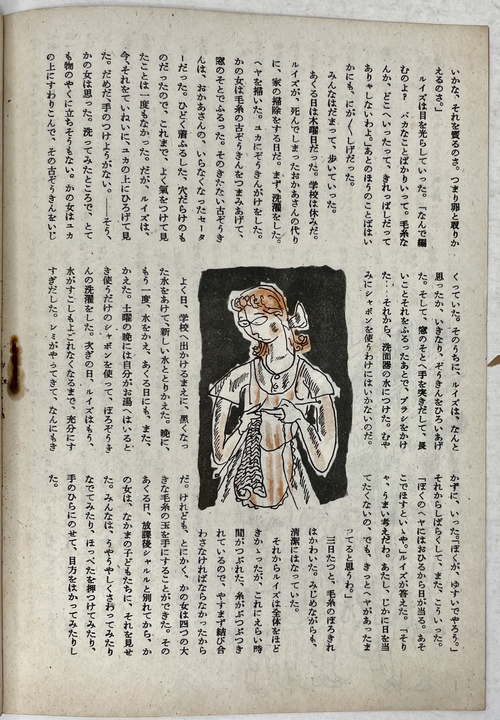 いかな、それを賣るのさ。つまり卵と取りか
えるのさ。」
ルイズは目を光らしていつた。「こなんで編
むのよ？　バカなことばかりいつて。毛糸な
んか、どこへいつたつて、きれつぱしだつて
ありやしないわよ。」あとのほうのことばはい
かにも、にが〳〵しげだつた。
みんなはだまつて、歩いていつた。
あくる日は木曜日だつた。学校は休みだ。
ルイズが、死んでしまつたおかあさんの代り
に、家の掃除をする日だ。まず、洗濯をした。
ヘヤを掃いた。ユカにぞうきんがけをした。
かの女は毛糸の古ぞうきんをつまみあげて、
窓のそとでふるつた。そのきたない古ぞうき
んは、おかあさんの、いらなくなつたセータ
ーだつた。ひどく着ふるした、穴だらけのも
のだつたので、これまで、よく氣をつけて見
たことは一度もなかつた。だが、ルイズは、
今、それをていねいに、ユカの上にひろげて見
た。だめだ、手のつけようがない。――そう、
かの女は思つた。洗つてみたところで、とて
も物のやくに立ちそうもない。かの女はユカ
の上にすわりこんで、その古ぞうきんをいじ
くつていた。そのうちに、ルイズは、なんと
思つたか、いきなり、ぞうきんをひろいあげ
た。そして、窓のそとへ手を突きだして、長
いことそれをふるつたあとで、ブラシをかけ
た…それから、洗面器の水につけた。むや
みにシャボンを使うわけにはいかないのだ。
よく日、学校へ出かけるまえに、黒くなつ
た水をあけて、新しい水ととりかえた。晩に、
もう一度、水をかえ、あくる日にも、また、
かえた。土曜の晩には自分がお湯へはいると
き使うだけのシャボンを使つて、ぼろぞうき
んの洗濯をした。次ぎの日、ルイズはもう、
水がすこしもよごれなくなるまで、充分にす
すぎだした。レミがやつてきて、なんにもき
かずに、いつた。「ぼくが、ゆすいでやろう。」
それからしばらくして、また、こういつた。
「ぼくのヘヤにはおひるから日が当る。あそ
こでほすといゝや。」ルイズが答えた。「そり
や、うまい考えだわ。あたし、じかに日を当
てたくないの、でも、きつとヘヤがあつたま
つてると思うわ。」
三日たつと、毛糸のぼろきれ
はかわいた。みじめながらも、
清潔にはなつていた。
それからルイズは全体をほど
きかゝつたが、これにえらい時
間がつぶれた。糸がぶつぶつき
れているので、やすまず結び合
わさなければならなかつたから
だ。けれども、とにかく、かの女は四つの大
きな毛糸の玉を手にすることができた。その
あくる日、放課後シャルルと別れてから、か
の女は、なかまの子どもたちに、それを見せ
た。みんなは、うやうやしくさわつてみたり
なでてみたり、ほつぺたを押つけてみたり、
手のひらにのせて、目方をはかつてみたりし
た。